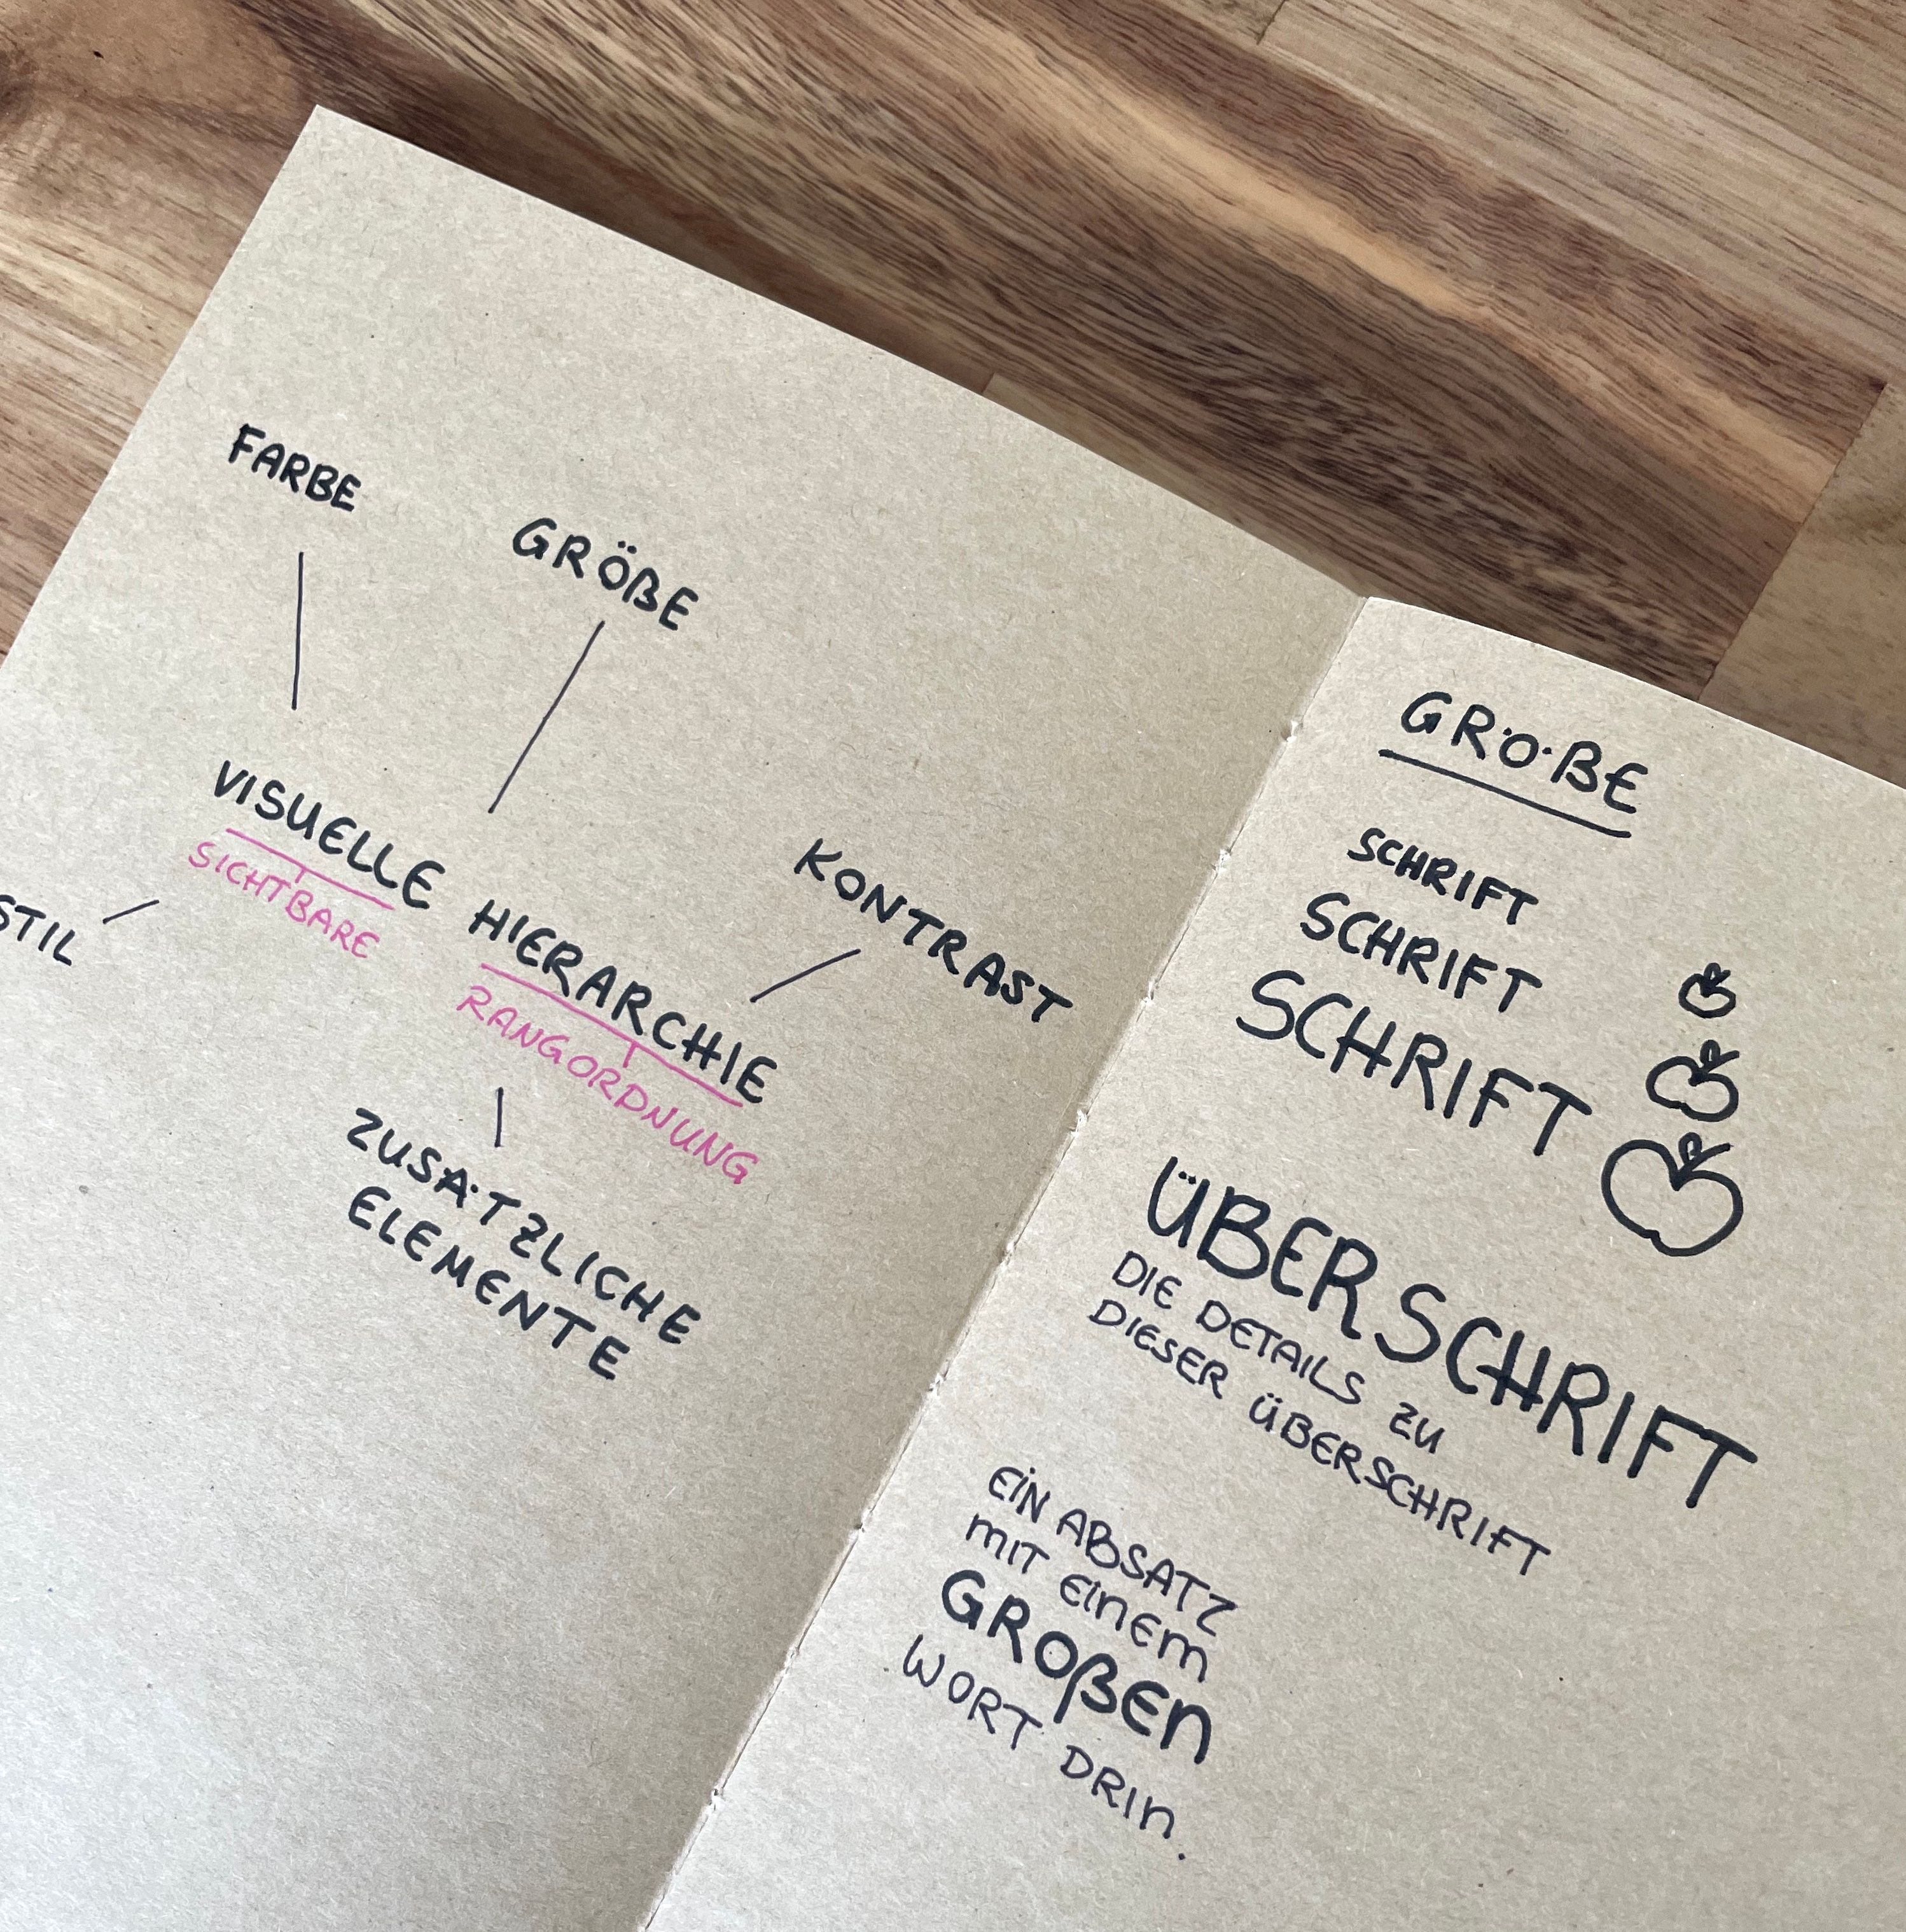 FARBE
GRÖßE
VISUELLE HIERARCHIE
SICHTBARE
RANGORDNUNG
KONTRAST
STIL
ZUSÄTZLICHE
ELEMENTE
GRÖßE
SCHRIFT
SCHRIFT
SCHRIFT
ÜBERSCHRIFT
DIE DETAILS ZU
DIESER ÜBERSCHRIFT
EIN ABSATZ
MIT EINEM
GROßEN
WORT DRIN.